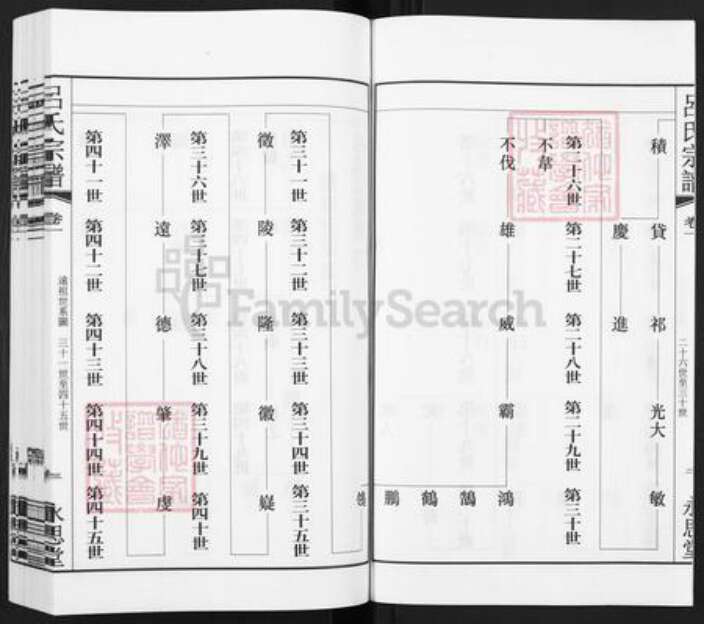 呂氏宗譜
卷一
二十六世至三十世
永思堂
積 貸 祁 光大 敏
慶 進
第二十六世 第二十七世 第二十八世 第二十九世 第三十世
不華
不伐 雄 威 霸 鴻
鵠
鶴
鵬
第三十一世 第三十二世 第三十三世 第三十四世 第三十五世
徵 陵 隆 徽 嶷
第三十六世 第三十七世 第三十八世 第三十九世 第四十世
澤 遠 德 肇 虔
第四十一世 第四十二世 第四十三世 第四十四世 第四十五世
遠祖世系圖 三十一世至四十五世
呂氏宗譜
卷一
永思堂
FamilySearch